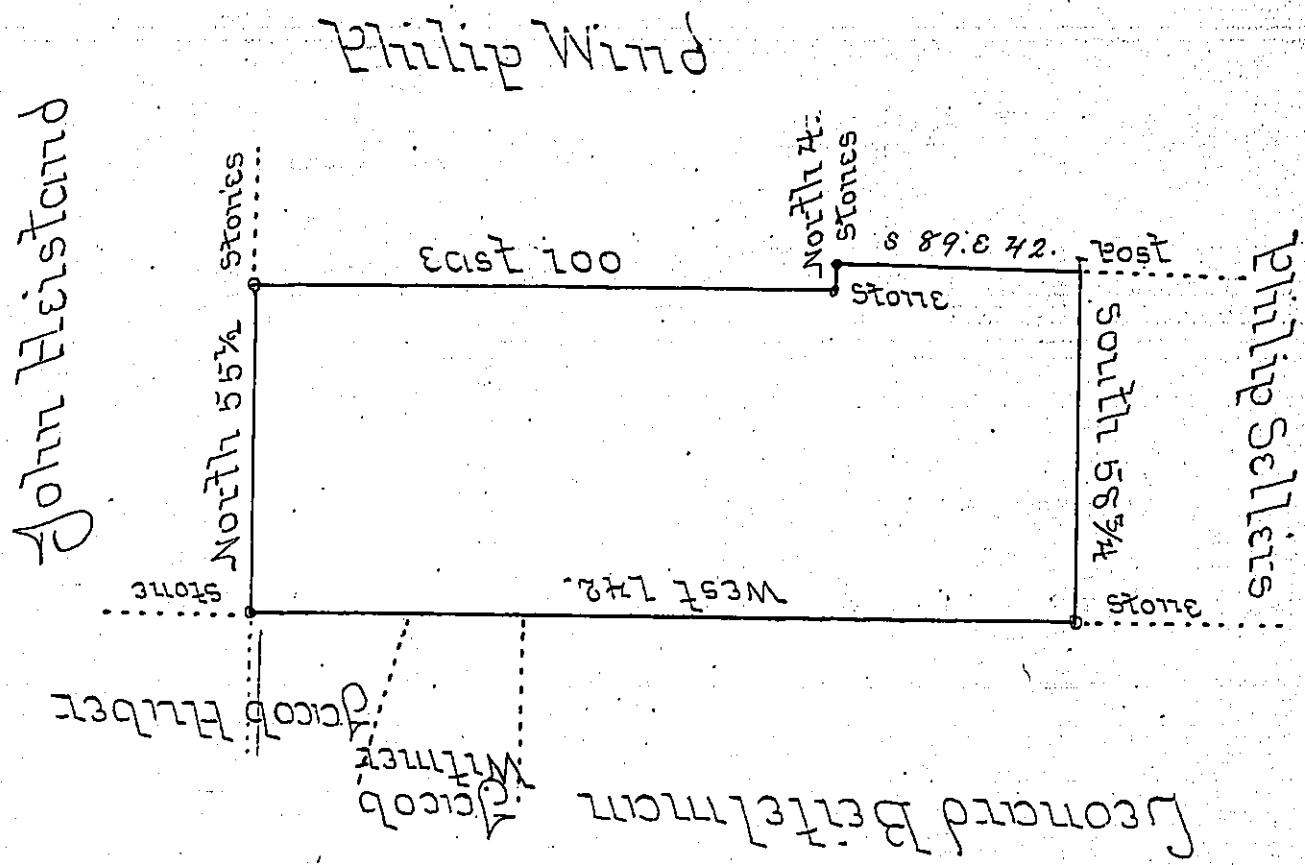 Philip Wind
John Heistand
stones
North 55½
East 100
North 4.
stones
stone
S 89. E 42.
Post
South 58¾
Philip Sellers
stone
West 142.
stone
Jacob Huber
Jacob
Witmer
Leonard Beitelman